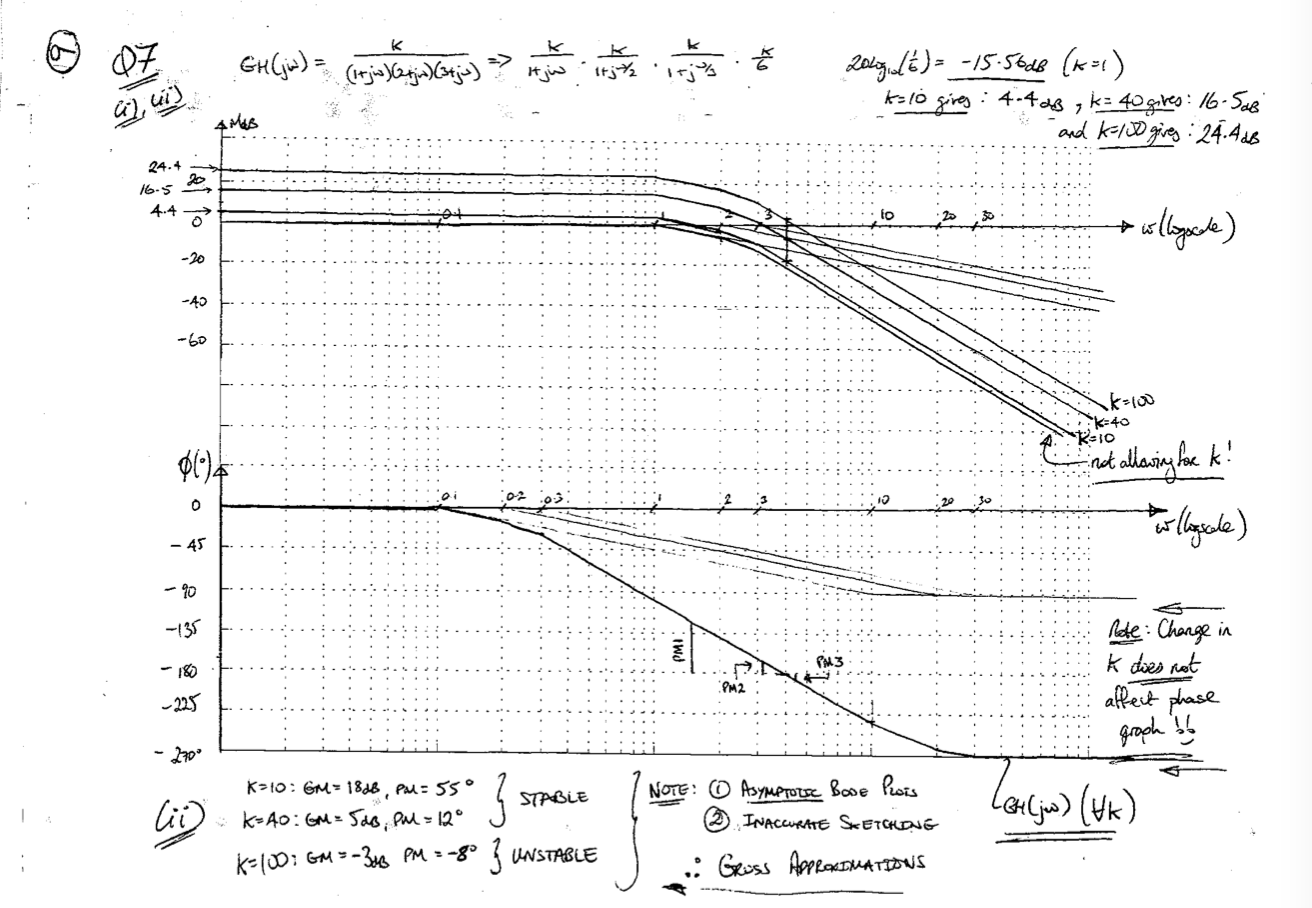 9
Q7
(i), (ii)
GH(jω) = K / (1+jω)(2+jω)(3+jω) => K / 1+jω · K / 1+jω/2 · K / 1+jω/3 · K/6
20log₁₀(1/6) = -15.56dB (K=1)
K=10 gives: 4.4dB, K=40 gives: 16.5dB
and K=100 gives: 24.4dB
MdB
24.4
20
16.5
4.4
0
-20
-40
-60
0.1 1 2 3 10 20 30
ω (logscale)
K=100
K=40
K=10
not allowing for K!
ϕ(°)
0
-45
-90
-135
-180
-225
-270°
0.1 0.2 0.3 1 2 3 10 20 30
ω (logscale)
PM1
PM2
PM3
Note: Change in
K does not
affect phase
graph !!
GH(jω) (∀K)
(ii)
K=10: GM = 18dB, PM = 55°
K=40: GM = 5dB, PM = 12°
} STABLE
K=100: GM = -3dB PM = -8° } UNSTABLE
NOTE: ① ASYMPTOTIC BODE PLOTS
② INACCURATE SKETCHING
∴ GROSS APPROXIMATIONS